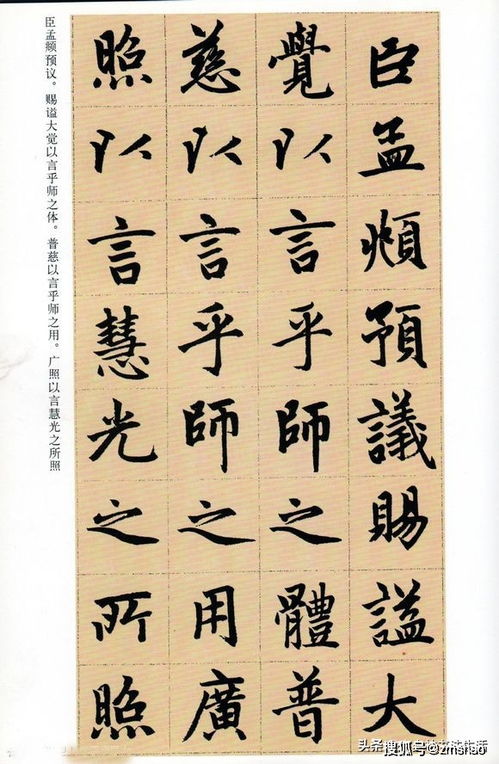 臣孟頫預議賜謚大
覺以言乎師之體普
慈以言乎師之用廣
照以言慧光之所照
臣孟頫预议。赐谥大觉以言乎师之体。普慈以言乎师之用。广照以言慧光之所照
搜狐号@zmshao